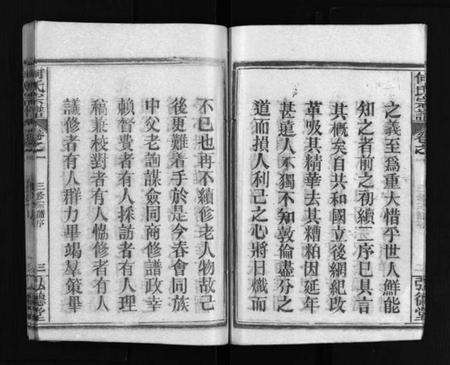 何氏宗譜
卷之一
弘德堂
之義至爲重大惜乎世人鮮能
知之者前之初續三序已具言
其概矣自共和國立後綱紀改
革吸其精華去其糟粕因延年
甚遠人不獨不知敦倫盡分之
道而損人利己之心將日熾而
不已也再不續修老人物故己
後更難着手於是今春會同族
中父老詢謀僉同商修譜政幸
賴督費者有人採訪者有人理
稿兼校對者有人協修者有人
議修者有人群力畢竭羣策畢
何氏宗譜
卷之一
三
弘德堂